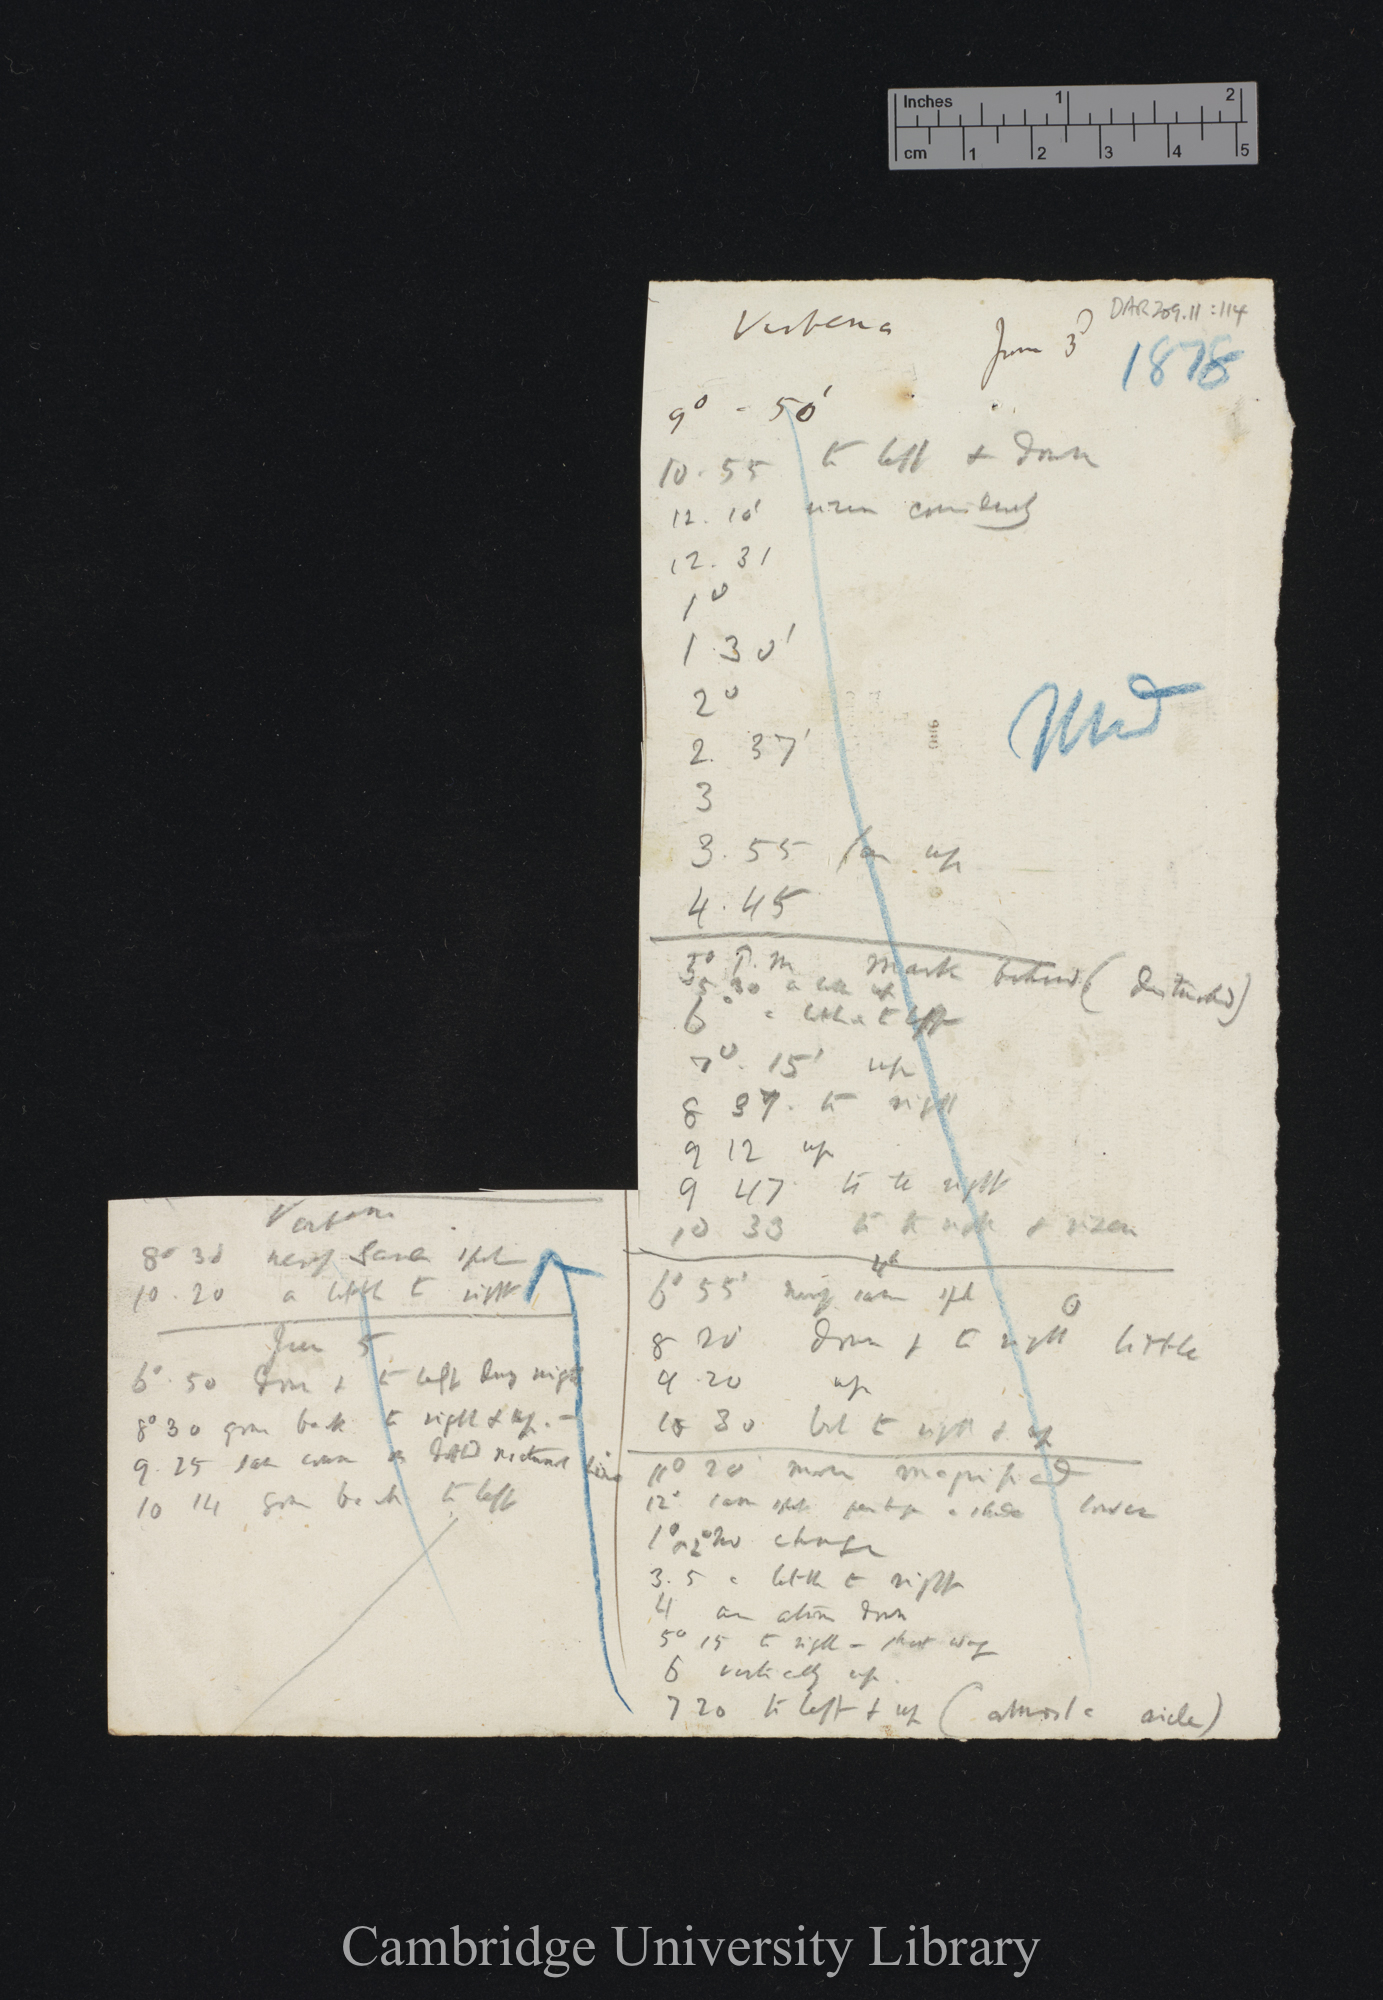 Inches 1 2
cm 1 2 3 4 5
DAR 209.11:114
Verbena June 3d
1878
9° - 50'
10. 55 to left & down
12. 10' risen considerably
12. 31
1°
1 30'
2°
2. 37'
3
Used
3. 55 up
4. 45
5° P.m Mark behind (disturbed)
5 30 a little up
6° a little to left
7°. 15' up
8 37. to right
9 12 up
9 47 to the right
10 33 to the right & risen
4th
6° 55' nearly same spot
8 20 down & to right little
9 20 up
10 30 to right & up
11° 20' more magnified
12° same spot perhaps a shade lower
1° 2° no change
3. 5 a little to right
4 an atom down
5° 15 to right – short way
6 vertically up
7 20 to left & up (almost a circle)
Verbena
8° 30 nearly same spot
10. 20 a little to right
June 5
6° 50 down & to left during night
8° 30 gone back to right & up. –
9. 25 same course as dotted line
10 14 gone back to left
Cambridge University Library